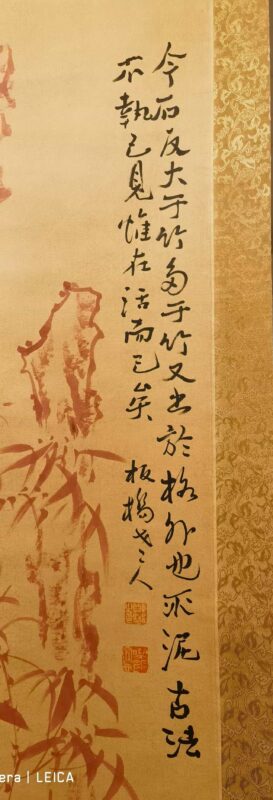 今石反大于竹多于竹又出於格外也不泥古法
不執己見惟在活而已矣
板橋老人
era | LEICA